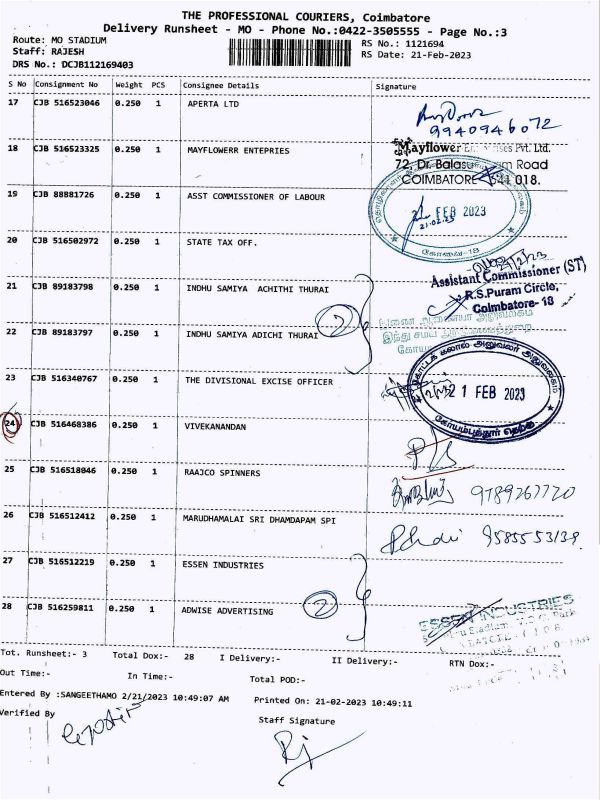 THE PROFESSIONAL COURIERS, Coimbatore
Delivery Runsheet - MO - Phone No.:0422-3505555 - Page No.:3
Route: MO STADIUM
RS No.: 1121694
Staff: RAJESH
RS Date: 21-Feb-2023
DRS No.: DCJB112169403
S No Consignment No Weight PCS Consignee Details Signature
17 CJB 516523046 0.250 1 APERTA LTD
9940946072
18 CJB 516523325 0.250 1 MAYFLOWERR ENTEPRIES
Mayflower Pvt. Ltd.
72, Dr. Road
COIMBATORE 018.
19 CJB 88881726 0.250 1 ASST COMMISSIONER OF LABOUR
FEB 2023
கோவை-18
20 CJB 516502972 0.250 1 STATE TAX OFF.
Assistant Commissioner (ST)
R.S.Puram Circle,
Coimbatore- 18
21 CJB 89183798 0.250 1 INDHU SAMIYA ACHITHI THURAI
2
22 CJB 89183797 0.250 1 INDHU SAMIYA ADICHI THURAI
23 CJB 516340767 0.250 1 THE DIVISIONAL EXCISE OFFICER
21 FEB 2023
24 CJB 516468386 0.250 1 VIVEKANANDAN
25 CJB 516518046 0.250 1 RAAJCO SPINNERS
9789267720
26 CJB 516512412 0.250 1 MARUDHAMALAI SRI DHAMDAPAM SPI
27 CJB 516512219 0.250 1 ESSEN INDUSTRIES
2
28 CJB 516259811 0.250 1 ADWISE ADVERTISING
ESSEN INDUSTRIES
Tot. Runsheet:- 3 Total Dox:- 28 I Delivery:- II Delivery:- RTN Dox:-
Out Time:- In Time:- Total POD:-
Entered By :SANGEETHAMO 2/21/2023 10:49:07 AM Printed On: 21-02-2023 10:49:11
Verified By
Staff Signature